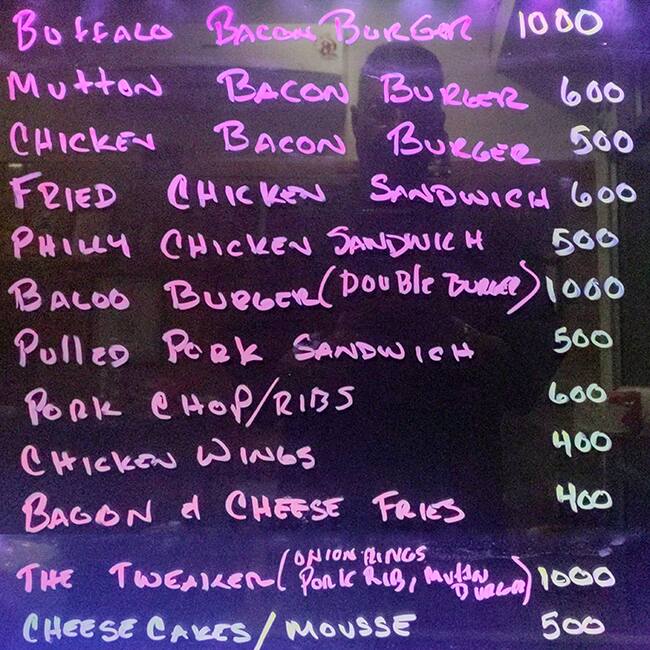 BUFFALO BACON BURGER 1000
MUTTON BACON BURGER 600
CHICKEN BACON BURGER 500
FRIED CHICKEN SANDWICH 600
PHILLY CHICKEN SANDWICH 500
BALOO BURGER (DOUBLE BURGER) 1000
PULLED PORK SANDWICH 500
PORK CHOP/RIBS 600
CHICKEN WINGS 400
BACON & CHEESE FRIES 400
THE TWEAKER (ONION RINGS PORK RIB, MUTTON BURGER) 1000
CHEESE CAKES/MOUSSE 500